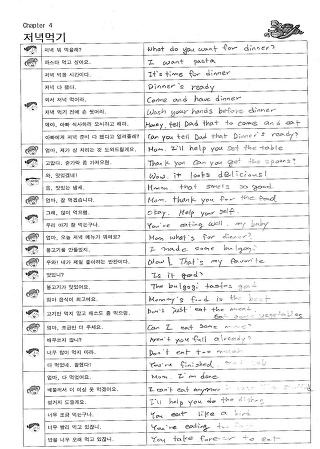 Chapter 4
저녁먹기
저녁 뭐 먹을래? What do you want for dinner?
파스타 먹고 싶어요. I want pasta
저녁 먹을 시간이다. It's time for dinner
저녁 다 됐다. Dinner's ready
어서 저녁 먹어라. Come and have dinner
저녁 먹기 전에 손 씻어라. Wash your hands before dinner
여보, 아빠 식사하러 오시라고 해라. dad that to come and eat
아빠에게 저녁 준비 다 됐다고 말해줄래? Can you tell Dad that Dinner's ready?
엄마, 제가 상 차리는 것 도와드릴게요. Mom. I'll help you set the table
고맙다. 숟가락 좀 가져오렴. Thank you Can you get the spoons?
와, 맛있겠네! Wow. it looks delicious!
음, 맛있는 냄새. Hmmm that smells so good
엄마, 잘 먹겠습니다. Mom. thank you for the food
그래, 많이 먹으렴. Okay. Help your self
우리 아기 잘 먹는구나. You're eating well. my baby
엄마, 오늘 저녁 메뉴가 뭐예요? Mom what's for dinner?
불고기를 만들었지. I made some bulgogi
우와! 내가 제일 좋아하는 반찬이다. Wow! That's my favorite
맛있니? Is it good?
불고기가 맛있어요. The bulgogi tastes good
엄마 음식이 최고예요. Mommy's food is the best
고기만 먹지 말고 채소도 좀 먹으렴. Don't just eat the meat. eat some vegetables
엄마, 조금만 더 주세요. Can I eat some more?
배부르지 않니? Aren't you full already?
너무 많이 먹지 마라. Don't eat too much
다 먹었네, 잘했다! You're finished.
엄마, 다 먹었어요. Mom I'm done
배불러서 더 이상 못 먹겠어요. I can't eat anymore
설거지 도울게요. I'll help you do the dishes
너무 조금 먹는구나. You eat like a bird
너무 빨리 먹고 있잖니. You're eating too
밥을 너무 오래 먹고 있잖니. You take forever to eat